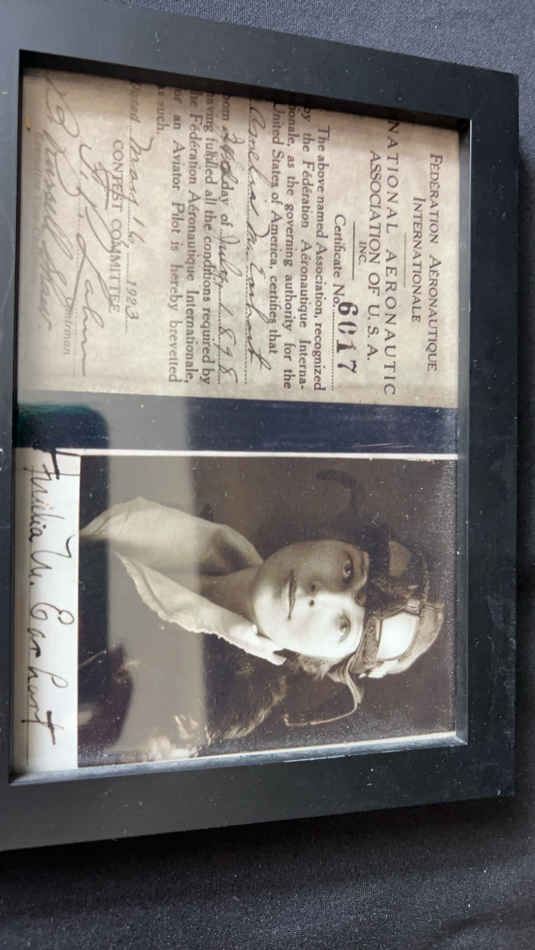 FÉDÉRATION AÉRONAUTIQUE
INTERNATIONALE
NATIONAL AERONAUTIC
ASSOCIATION OF U. S. A.
INC.
Certificate No. 6017
The above named Association, recognized
by the Fédération Aéronautique Interna-
tionale, as the governing authority for the
United States of America, certifies that
Amelia M. Earhart
born 24th day of July 1898
having fulfilled all the conditions required by
the Fédération Aéronautique Internationale,
for an Aviator Pilot is hereby brevetted
as such.
Dated May 16, 1923
CONTEST COMMITTEE
Chairman
Amelia M. Earhart